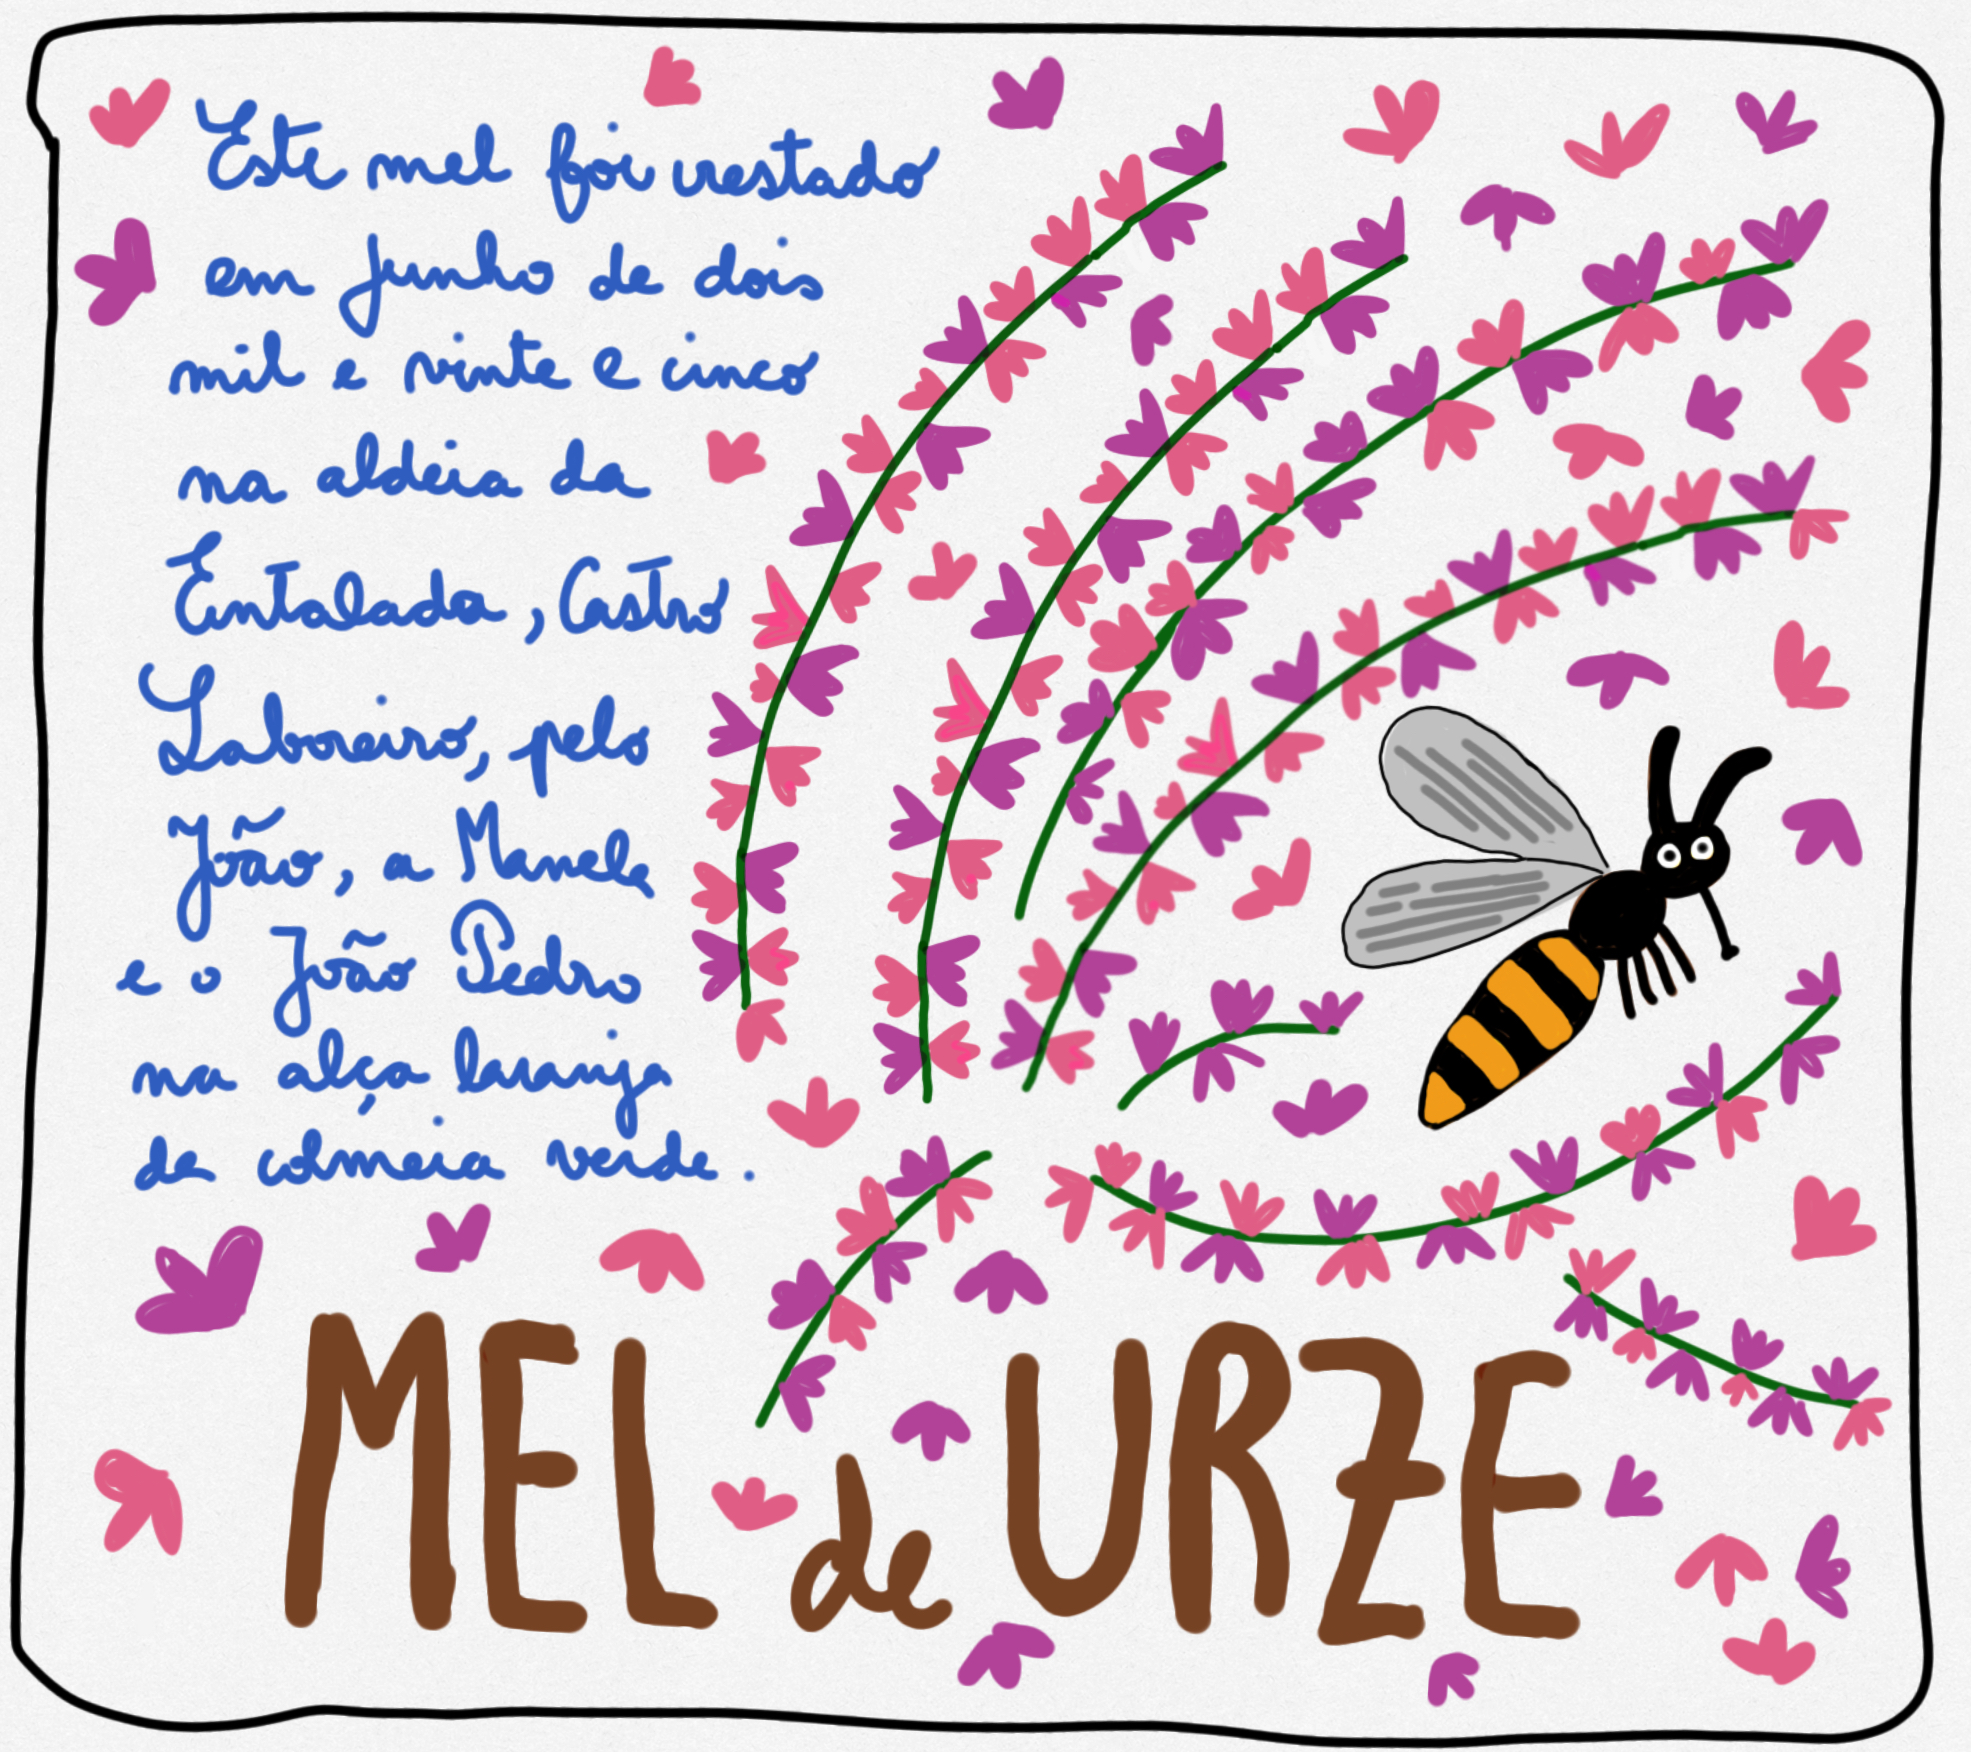 Este mel foi crestado
em Junho de dois
mil e vinte e cinco
na aldeia da
Entalada, Castro
Laboreiro, pelo
João, a Manela
e o João Pedro
na alça laranja
de colmeia verde.
MEL de URZE